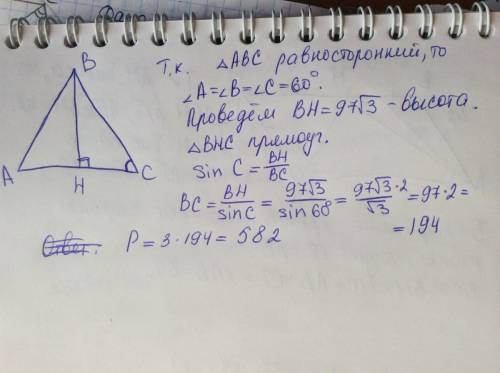 B
A
H
C
Т.к. △ABC равносторонний, то
∠A=∠B=∠C=60°.
Проведём BH=97√3 - высота.
△BHC прямоуг.
sin C = BH/BC
BC = BH/sinC = 97√3/sin 60° = 97√3·2/√3 = 97·2 =
= 194
Ответ: P = 3·194 = 582